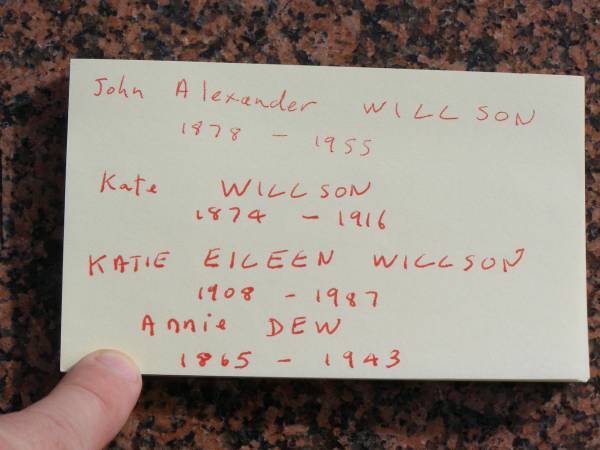 John Alexander WILLSON
1878 - 1955
Kate WILLSON
1874 - 1916
KATIE EILEEN WILLSON
1908 - 1987
Annie DEW
1865 - 1943